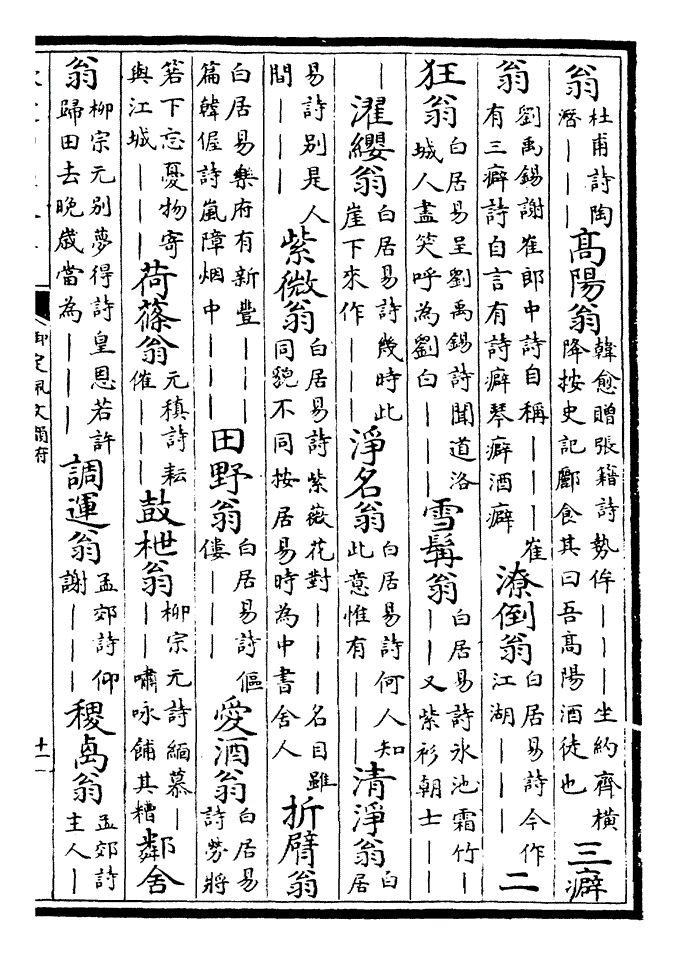 翁杜甫詩陶潛｜｜｜髙陽翁韓愈贈張籍詩勢侔｜｜｜坐約齊橫降按史記酈食其曰吾髙陽酒徒也三癖
翁劉禹錫謝崔郎中詩自稱｜｜｜崔有三癖詩自言有詩癖琴癖酒癖潦倒翁白居易詩今作江湖｜｜｜二
狂翁白居易呈劉禹錫詩聞道洛城人盡笑呼為劉白｜｜｜雪髯翁白居易詩氷池霜竹｜｜｜又紫衫朝士｜｜
｜濯纓翁白居易詩幾時此崖下來作｜｜｜淨名翁白居易詩何人知此意惟有｜｜｜清淨翁白居
易詩别是人間｜｜｜紫微翁白居易詩紫薇花對｜｜｜名目雖同貌不同按居易時為中書舍人折臂翁
白居易樂府有新豐｜｜｜篇韓偓詩嵐障烟中｜｜｜田野翁白居易詩傴僂｜｜｜愛酒翁白居易詩勞將
箬下忘憂物寄與江城｜｜｜荷蓧翁元稹詩耘催｜｜｜鼓枻翁柳宗元詩緬慕｜｜｜嘯咏餔其糟鄰舍
翁柳宗元别夢得詩皇恩若許歸田去晚歲當為｜｜｜調運翁孟郊詩仰謝｜｜｜稷卨翁孟郊詩主人｜
十一